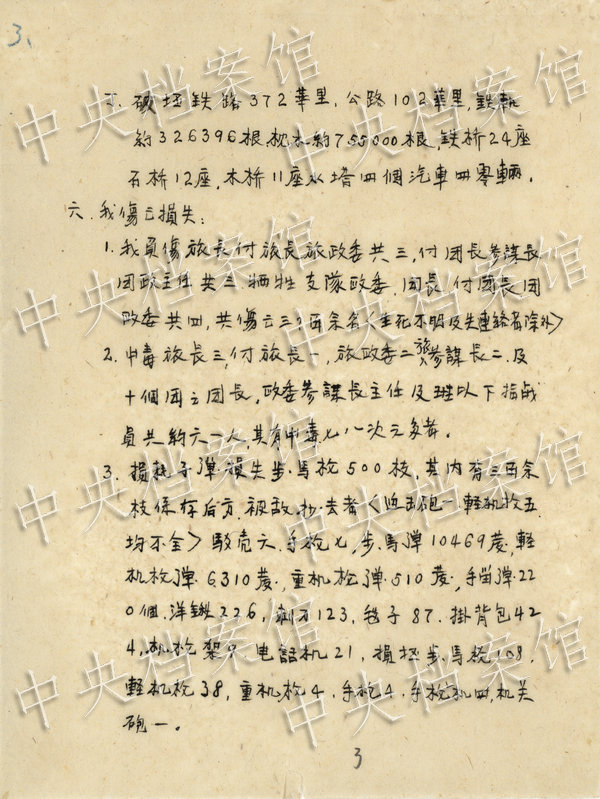 3、
丁. 破坯鉄路372華里,公路102華里,鉄軌
約326396根,枕木約755000根,鉄桥24座
石桥12座,木桥11座水塔四個汽車四零輛。
六. 我傷亡損失:
1. 我負傷旅長付旅長旅政委共三,付团長参謀長
团政主任共三 牺牲支隊政委,团長付团長团
政委共四,共傷亡三千百余名<生死不明及失連絡者除外>
2. 中毒旅長三,付旅長一,旅政委二旅参謀長二,及
十個团之团長,政委参謀長主任及班以下指战
員共約六一人,其有中毒七八次之多者。
3. 損耗子弹 損失步.馬枪500枝,其内有三百余
枝係存后方.被敌.抄去者<迫击砲一軽机枪五.
均不全>駁壳六.手枪七,步.馬弹10469发,軽
机枪弹.6310发,重机枪弹.510发,手甾弹.22
0個.洋鍬226,刺刀123,毯子87.掛背包42
4,机枪架9 电話机21,損坯步.馬枪108,
軽机枪38,重机枪4.手枪4.手枪机四,机关
砲一。
3
中央档案馆
中央档案馆
中央档案馆
中央档案馆
中央档案馆
中央档案馆
中央档案馆
中央档案馆